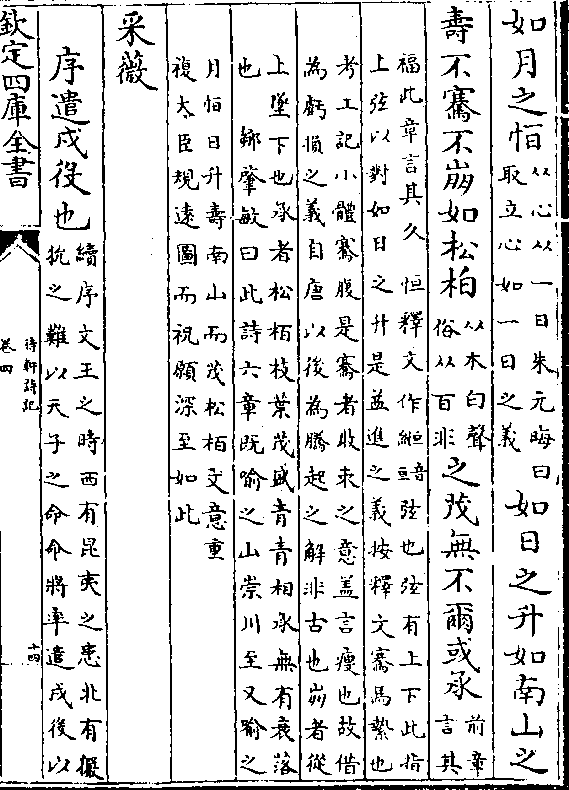 如月之恒
从心从一日朱元晦曰
取立心如一日之義
如日之升如南山之
壽不騫不崩如松柏
从木白聲
俗从百非
之茂無不爾或承
前章
言其
福此章言其久 恒釋文作緪音亘弦也弦有上下此指
上弦以對如日之升是益進之義按釋文騫馬縶也
考工記小體騫腹是騫者收束之意盖言瘦也故借
為虧損之義自唐以後為騰起之解非古也崩者從
上墜下也承者松栢枝葉茂盛青青相承無有衰落
也 鄒肇敏曰此詩六章既喻之山崇川至又喻之
月恒日升壽南山而茂松栢文意重
複大臣規遠圖而祝願深至如此
采薇
序遣戍役也
續序文王之時西有昆夷之患北有玁
狁之難以天子之命命將率遣戍後以
欽定四庫全書
待軒詩記
卷四
十四